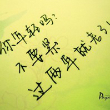 你年轻吗?
不要紧
过两年就老了